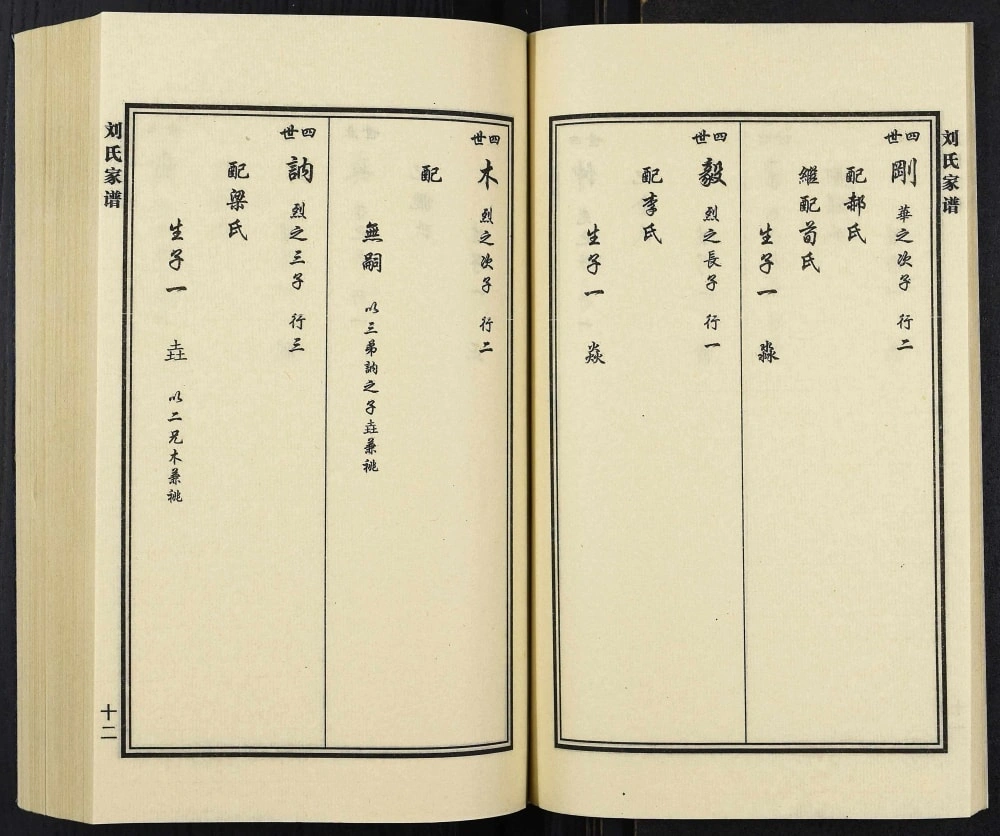 刘氏家谱
四世
剛 華之次子 行二
配郝氏
繼配荀氏
生子一 淼
四世
毅 烈之長子 行一
配李氏
生子一 焱
四世
木 烈之次子 行二
配
無嗣 以三弟訥之子垚兼祧
四世
訥 烈之三子 行三
配梁氏
生子一 垚 以二兄木兼祧
刘氏家谱
十二